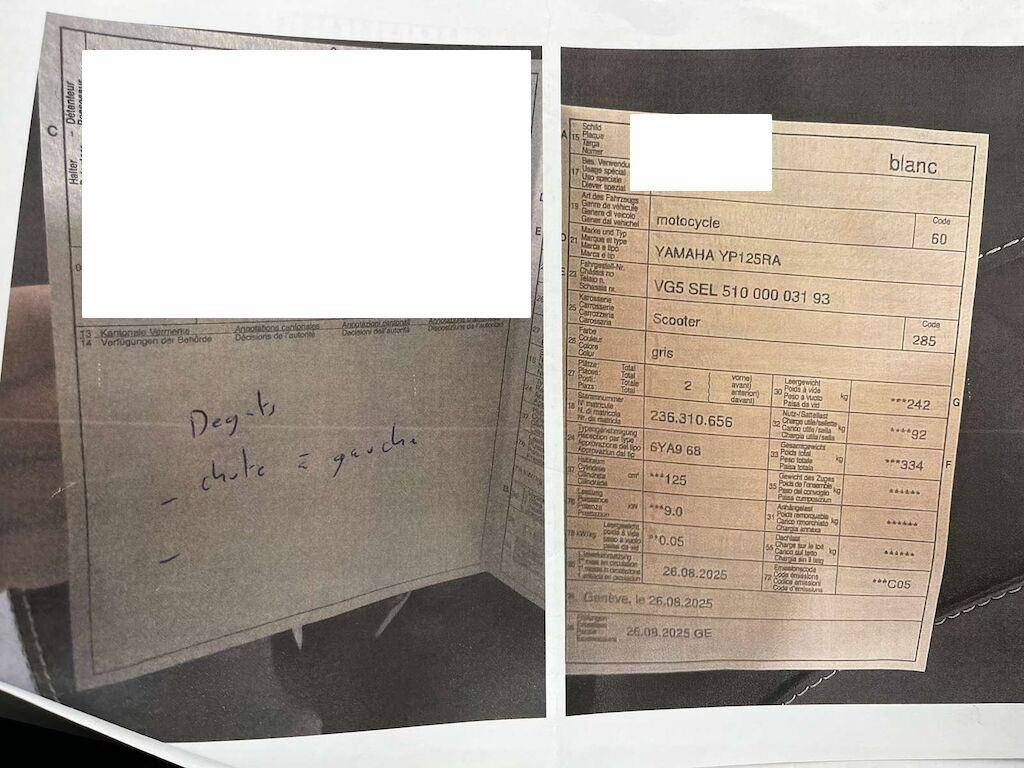 C
Halter - Détenteur
13 Kantonale Vermerke Annotations cantonales Annotazioni cantonali
14 Verfügungen der Behörde Décisions de l'autorité Decisioni dell'autorità Disposiziuns da l'autoritad
Degats
- chute à gauche
-
A 15 Schild
Plaque
Targa
Numer
blanc
17 Bes. Verwendung
Usage spécial
Uso speciale
Diever spezial
19 Art des Fahrzeugs
Genre de véhicule
Genere di veicolo
Gener dal vehichel
motocycle
Code
60
D 21 Marke und Typ
Marque et type
Marca e tipo
Marca e tip
YAMAHA YP125RA
E 23 Fahrgestell-Nr.
Châssis no
Telaio n.
Schassis nr.
VG5 SEL 510 000 031 93
25 Karosserie
Carrosserie
Carrozzeria
Carossaria
Scooter
Code
285
26 Farbe
Couleur
Colore
Colur
gris
27 Plätze: Total
Places: Total
Posti: Totale
Plazs: Total
2
vorne)
avant)
anteriori)
davant)
30 Leergewicht
Poids à vide
Peso a vuoto
Paisa da vid
kg
***242
G
18 Stammnummer
N° matricule
N. di matricola
Nr. da matricla
236.310.656
32 Nutz-/Sattellast
Charge utile/sellette
Carico utile/sella
Chargia utila/sella
kg
****92
24 Typengenehmigung
Réception par type
Approvazione del tipo
Approvaziun dal tip
6YA9 68
33 Gesamtgewicht
Poids total
Peso totale
Paisa totala
kg
***334
F
37 Hubraum
Cylindrée
Cilindrata
Cilindrada
cm³
***125
35 Gewicht des Zuges
Poids de l'ensemble
Peso del convoglio
Paisa cumposiziun
kg
******
76 Leistung
Puissance
Potenza
Prestaziun
kW
***9.0
31 Anhängelast
Poids remorquable
Carico rimorchiato
Chargia annexa
kg
******
78 kW/kg
Leergewicht
poids à vide
peso a vuoto
paisa da vid
**0.05
55 Dachlast
Charge sur le toit
Carico sul tetto
Chargia sin il tetg
kg
******
1. Inverkehrsetzung
1re mise en circulation
1. messa in circolazione
26.08.2025
72 Emissionscode
Code émissions
Codice emissioni
Code d'emissiuns
***C05
Genève, le 26.08.2025
26.08.2025 GE